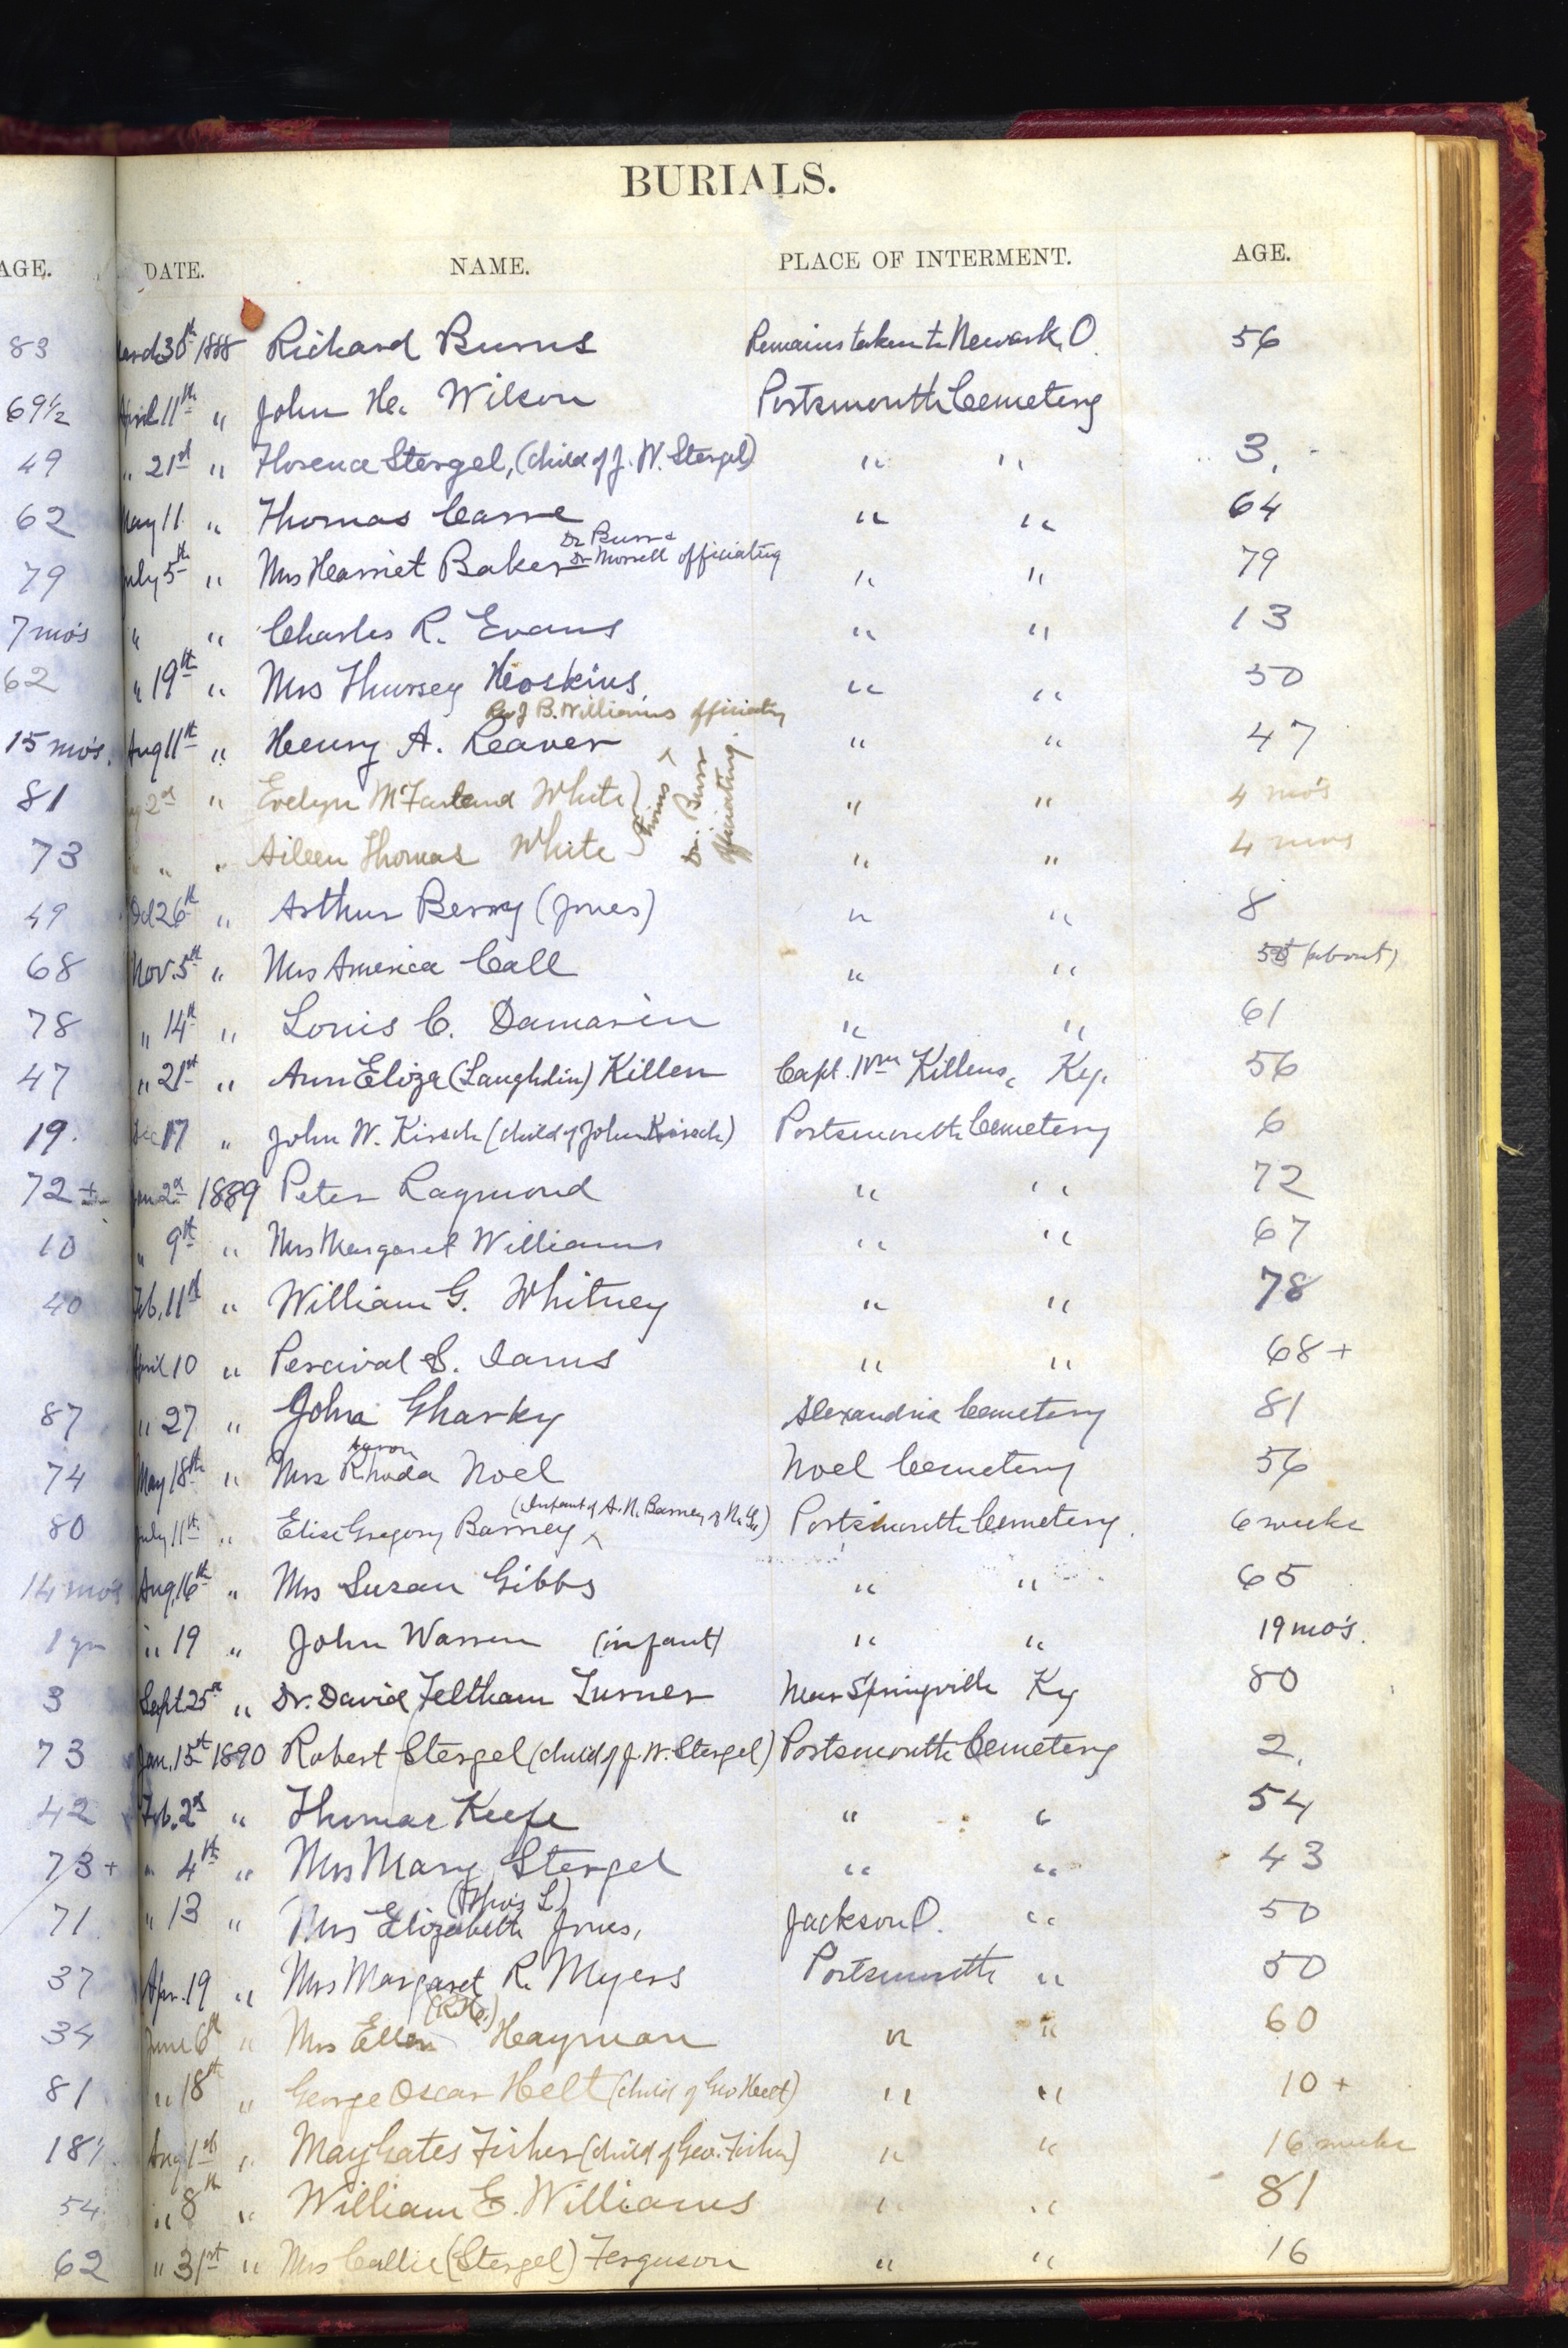 BURIALS.
AGE. DATE. NAME. PLACE OF INTERMENT. AGE.
83 March 30th 1888 Richard Burns Remains taken to Newark, O. 56
69½ April 11th " John H. Wilson Portsmouth Cemetery
49 " 21st " Florence Stergel, (child of J. W. Stergel) " " 3.
62 May 11 " Thomas Carre " " 64
Dr Burr &
79 July 5th " Mrs Harriet Baker Dr Morrell officiating " " 79
7 mo's " " Charles R. Evans " " 13
62 " 19th " Mrs Thursey Hoskins, " " 50
Rev J B. Williams officiating
15 mo's. Aug 11th " Henry A. Reaver " " 47
81 Aug 2d " Evelyn McFarland White) " " 4 mo's
twins Dr. Burr officiating.
73 " " " Aileen Thomas White " " 4 mos
49 Oct 26th " Arthur Berry (Jones) " " 8
68 Nov. 5th " Mrs America Call " " (about)
78 " 14th " Louis C. Damarin " " 61
47 " 21st " Ann Eliza (Laughlin) Killen Capt. Wm Killens, Ky. 56
19. Dec 17 " John W. Kirsch (child of John Kirsch) Portsmouth Cemetery 6
72 + Jan 2d 1889 Peter Raymond " " 72
10 " 9th " Mrs Margaret Williams " " 67
40 Feb. 11th " William G. Whitney " " 78
April 10 " Percival S. Iams " " 68 +
87 " 27 " John Gharky Alexandria Cemetery 81
Aaron
74 May 18th " Mrs Rhoda Noel Noel Cemetery 56
(Infant of A. N. Barney of N. Y.)
80 July 11th " Elise Gregory Barney ^ Portsmouth Cemetery. 6 weeks
14 mo's Aug. 16th " Mrs Susan Gibbs " " 65
1 yr " 19 " John Warren (infant) " " 19 mo's.
3 Sept. 25th " Dr. David Feltham Turner Near Springville Ky 80
73 Jan. 15th 1890 Robert Stergel (child of J. W. Stergel) Portsmouth Cemetery 2.
42 Feb. 2d " Thomas Keefe " " 54
73 + " 4th " Mrs Mary Stergel " " 43
71. " 13 " Mrs Elizabeth Jones, Jackson O. " 50
37 Apr. 19 " Mrs Margaret R. Myers Portsmouth " 50
(R. H.)
34 June 6th " Mrs Ellen Hayman " " 60
81 " 18th " George Oscar Helt (child of Geo Helt) " " 10 +
18½ Aug 1st " May Gates Fisher (child of Geo. Fisher) " " 16 weeks
54 " 8th " William E. Williams " " 81
62 " 31st " Mrs Callie (Stergel) Ferguson " " 16